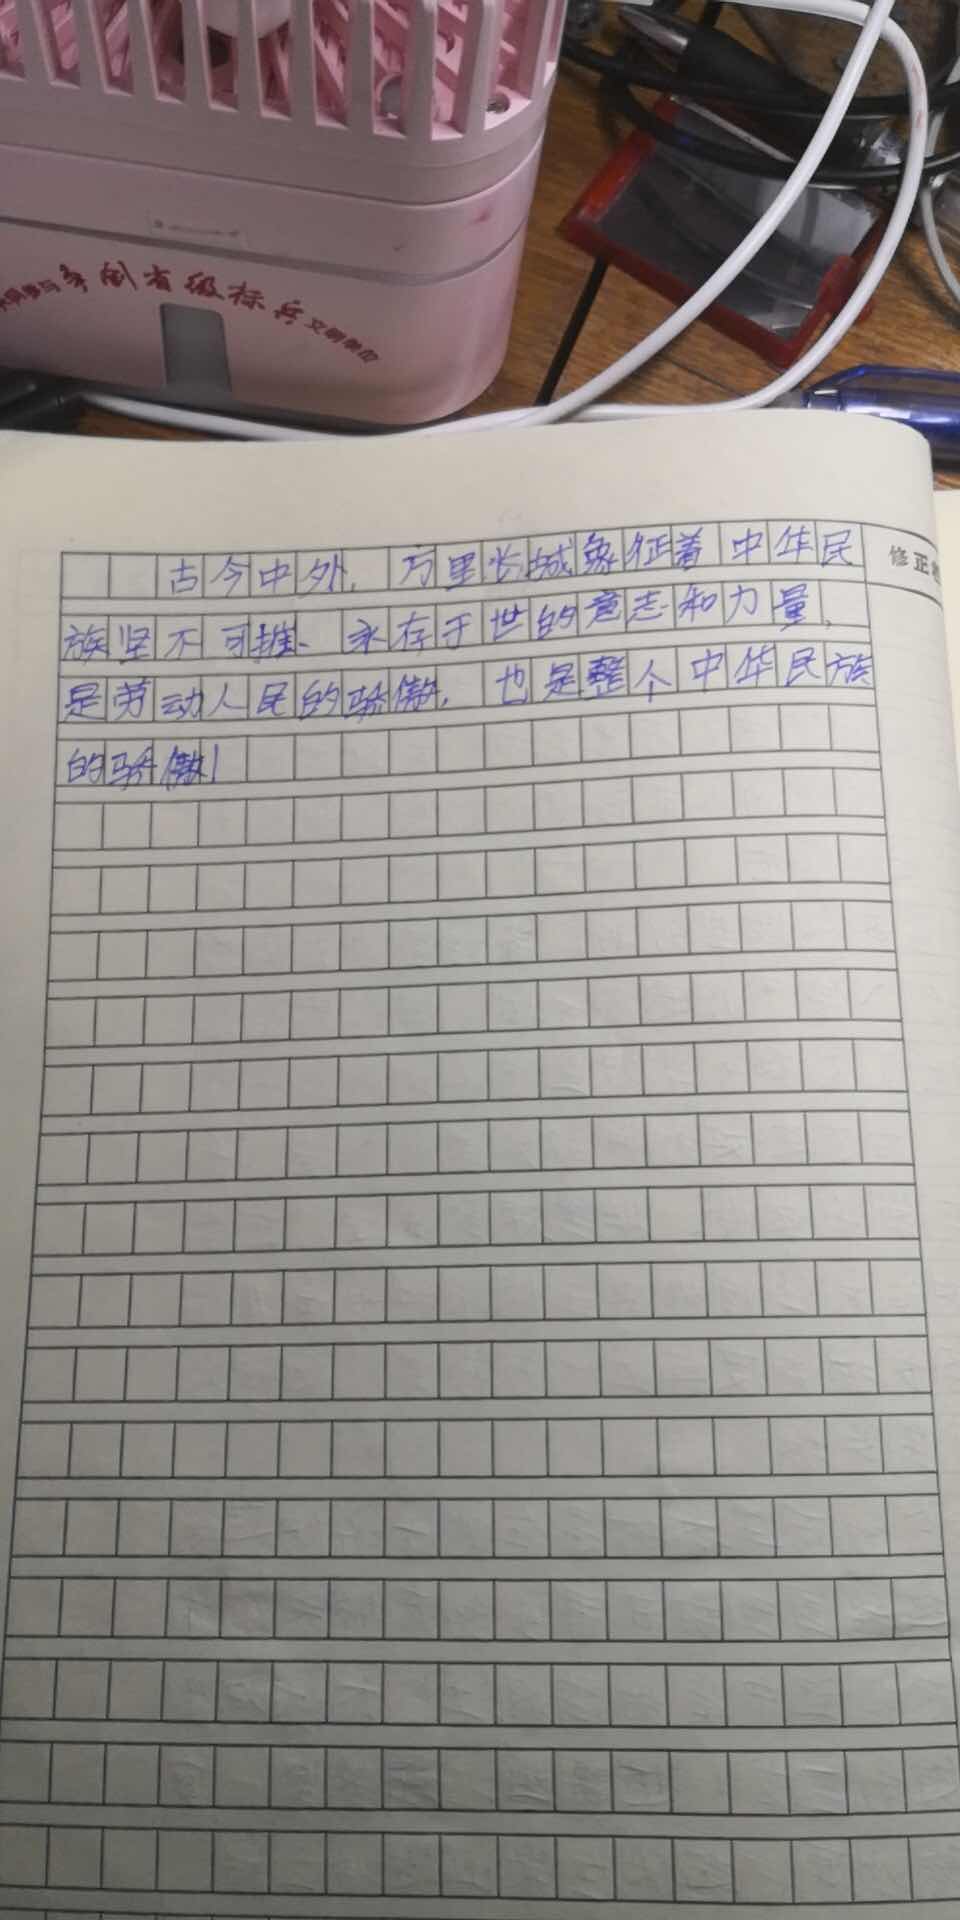 争创省级标兵文明单位
古今中外，万里长城象征着中华民
修正
族坚不可摧、永存于世的意志和力量，
是劳动人民的骄傲，也是整个中华民族
的骄傲！